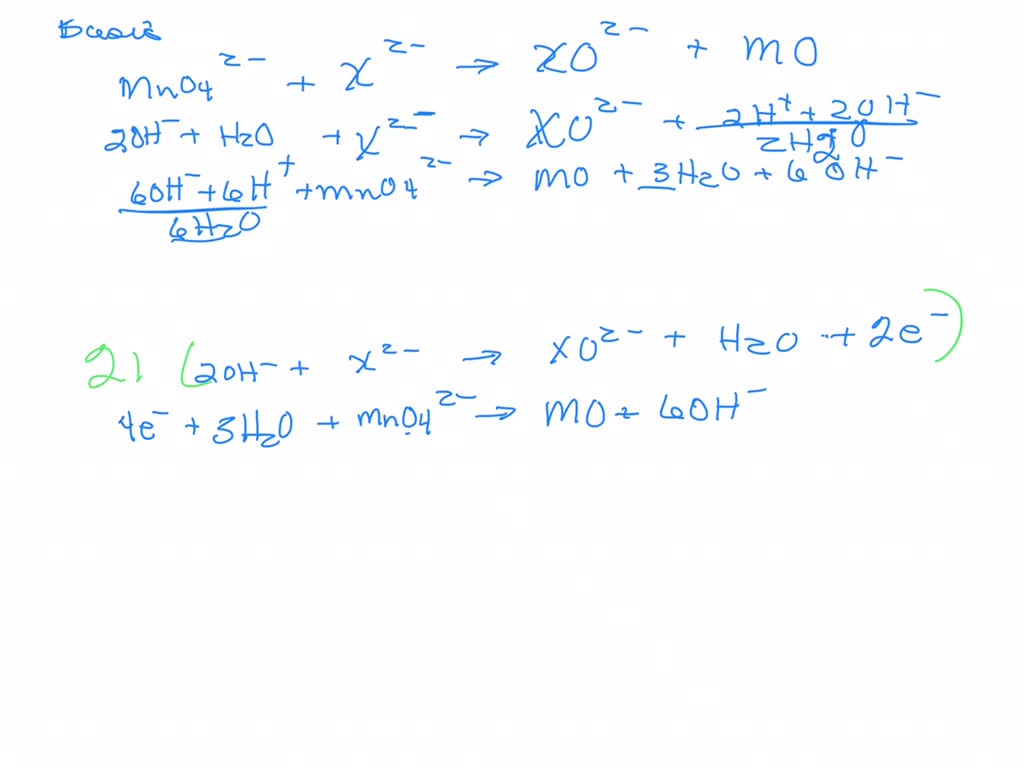 Basic
MnO4²⁻ + X²⁻ → XO²⁻ + MO
2OH⁻ + H2O + X²⁻ → XO²⁻ + 2H⁺ + 2OH⁻
2H2O
6OH⁻ + 6H⁺ + mnO4²⁻ → MO + 3H2O + 6OH⁻
6H2O
2( (2OH⁻ + X²⁻ → XO²⁻ + H2O + 2e⁻)
4e⁻ + 3H2O + MnO4²⁻ → MO + 6OH⁻